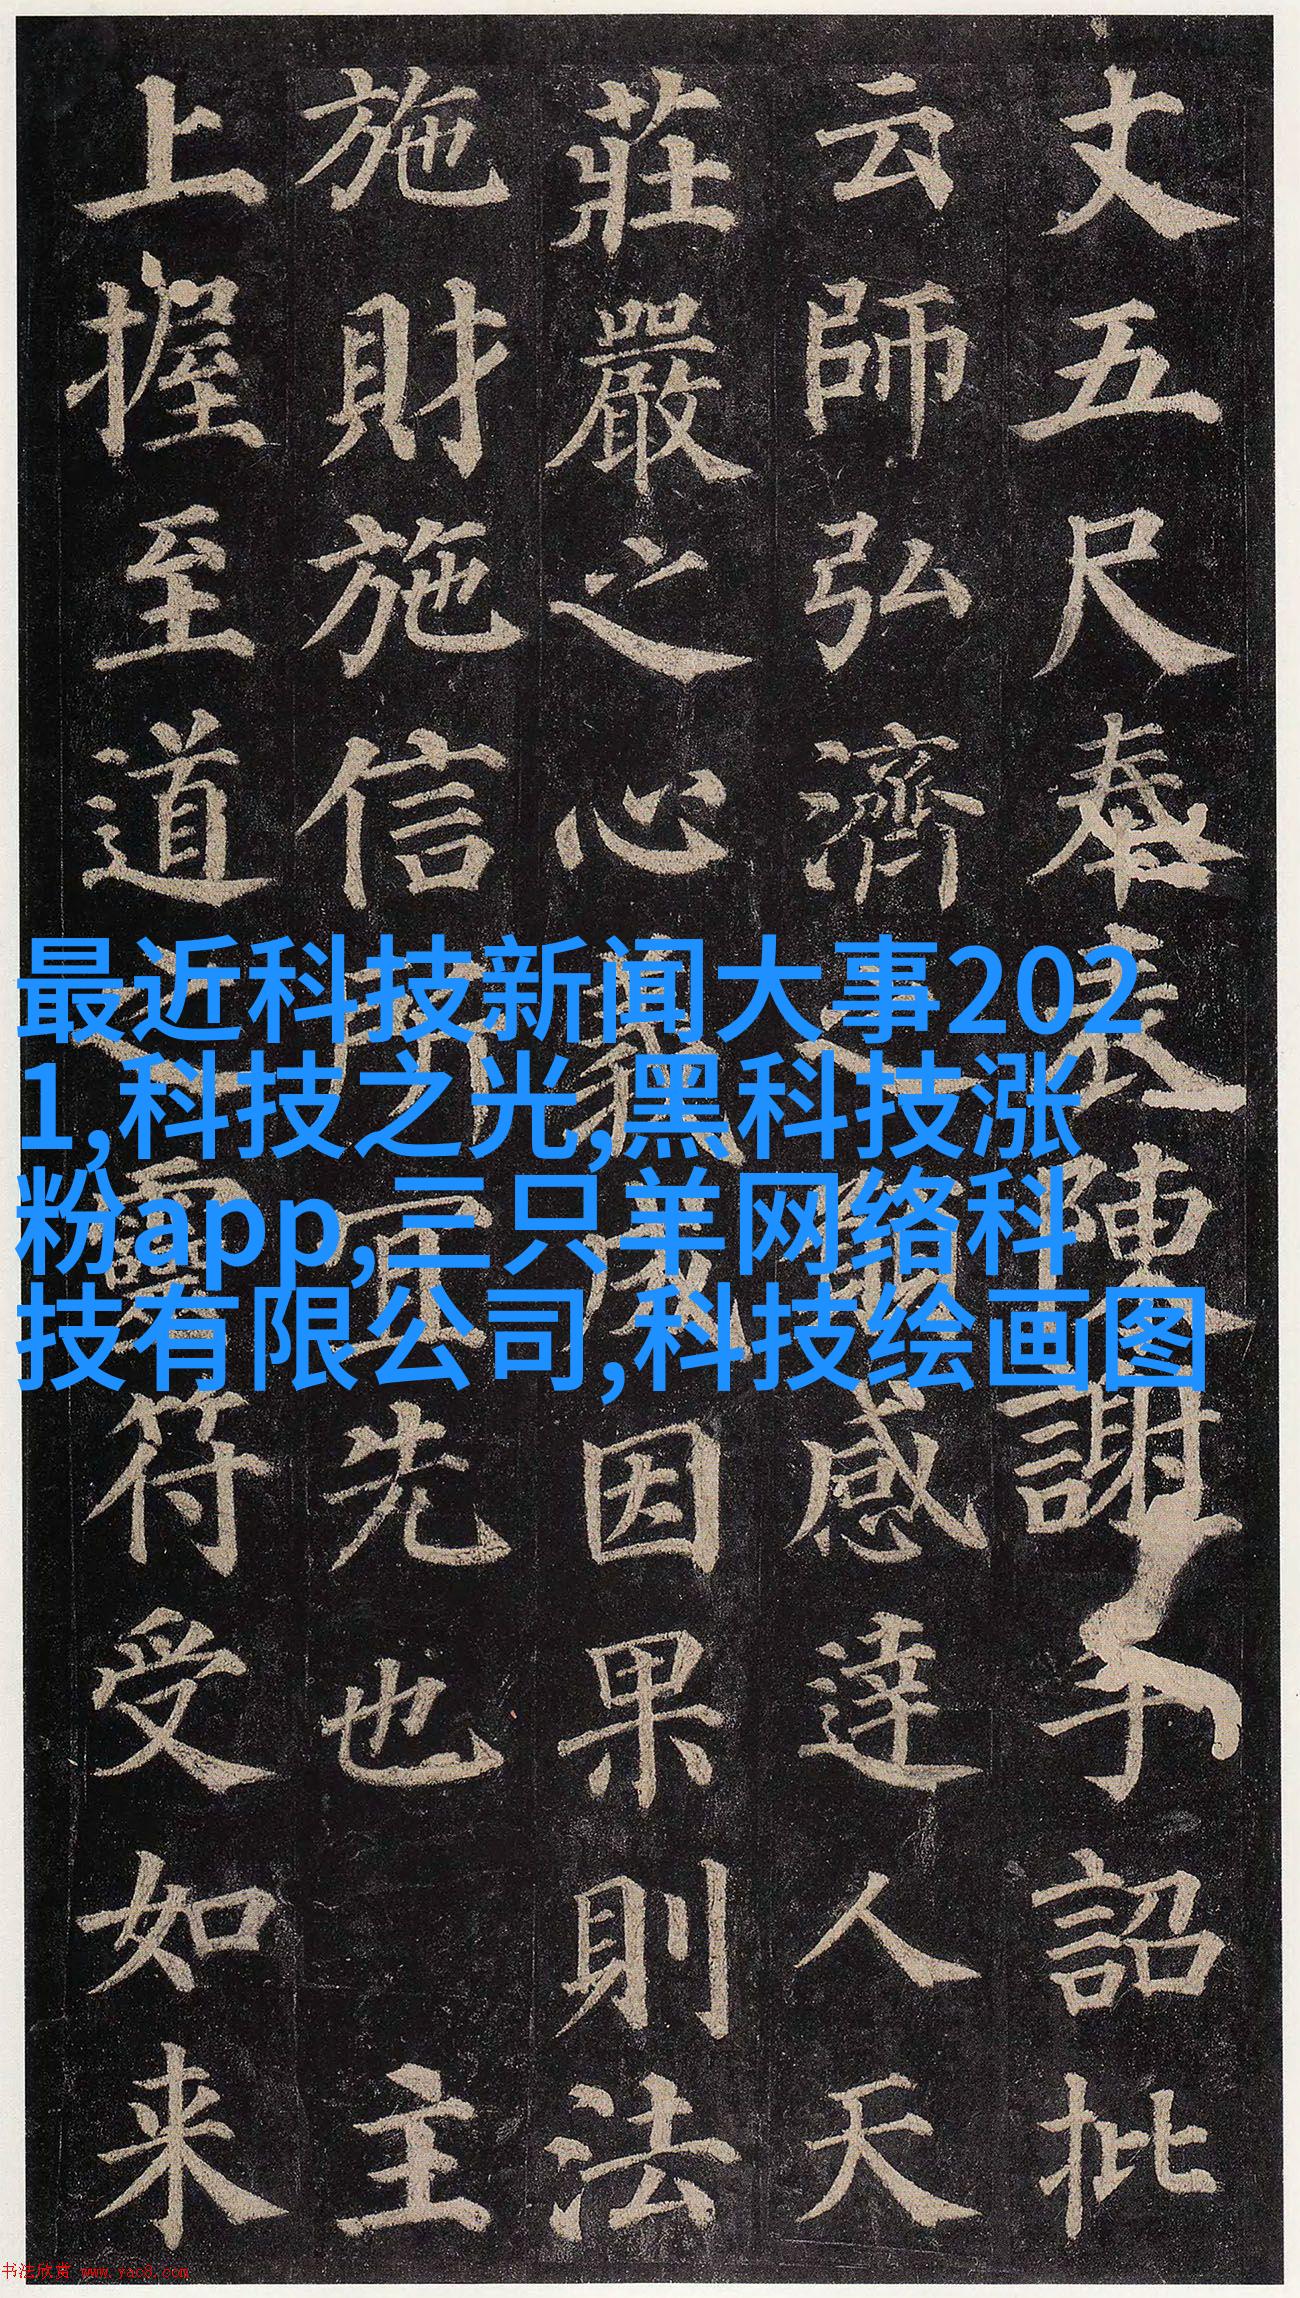 丈五尺奉表陳謝手詔批
云師弘濟之願感達人天
莊嚴之心義成因果則法
施財施信所宜先也 主
上握至道之靈符受如来
最近科技新闻大事202
1,科技之光,黑科技涨
粉app,三只羊网络科
技有限公司,科技绘画图
书法欣赏 www.yac8.com